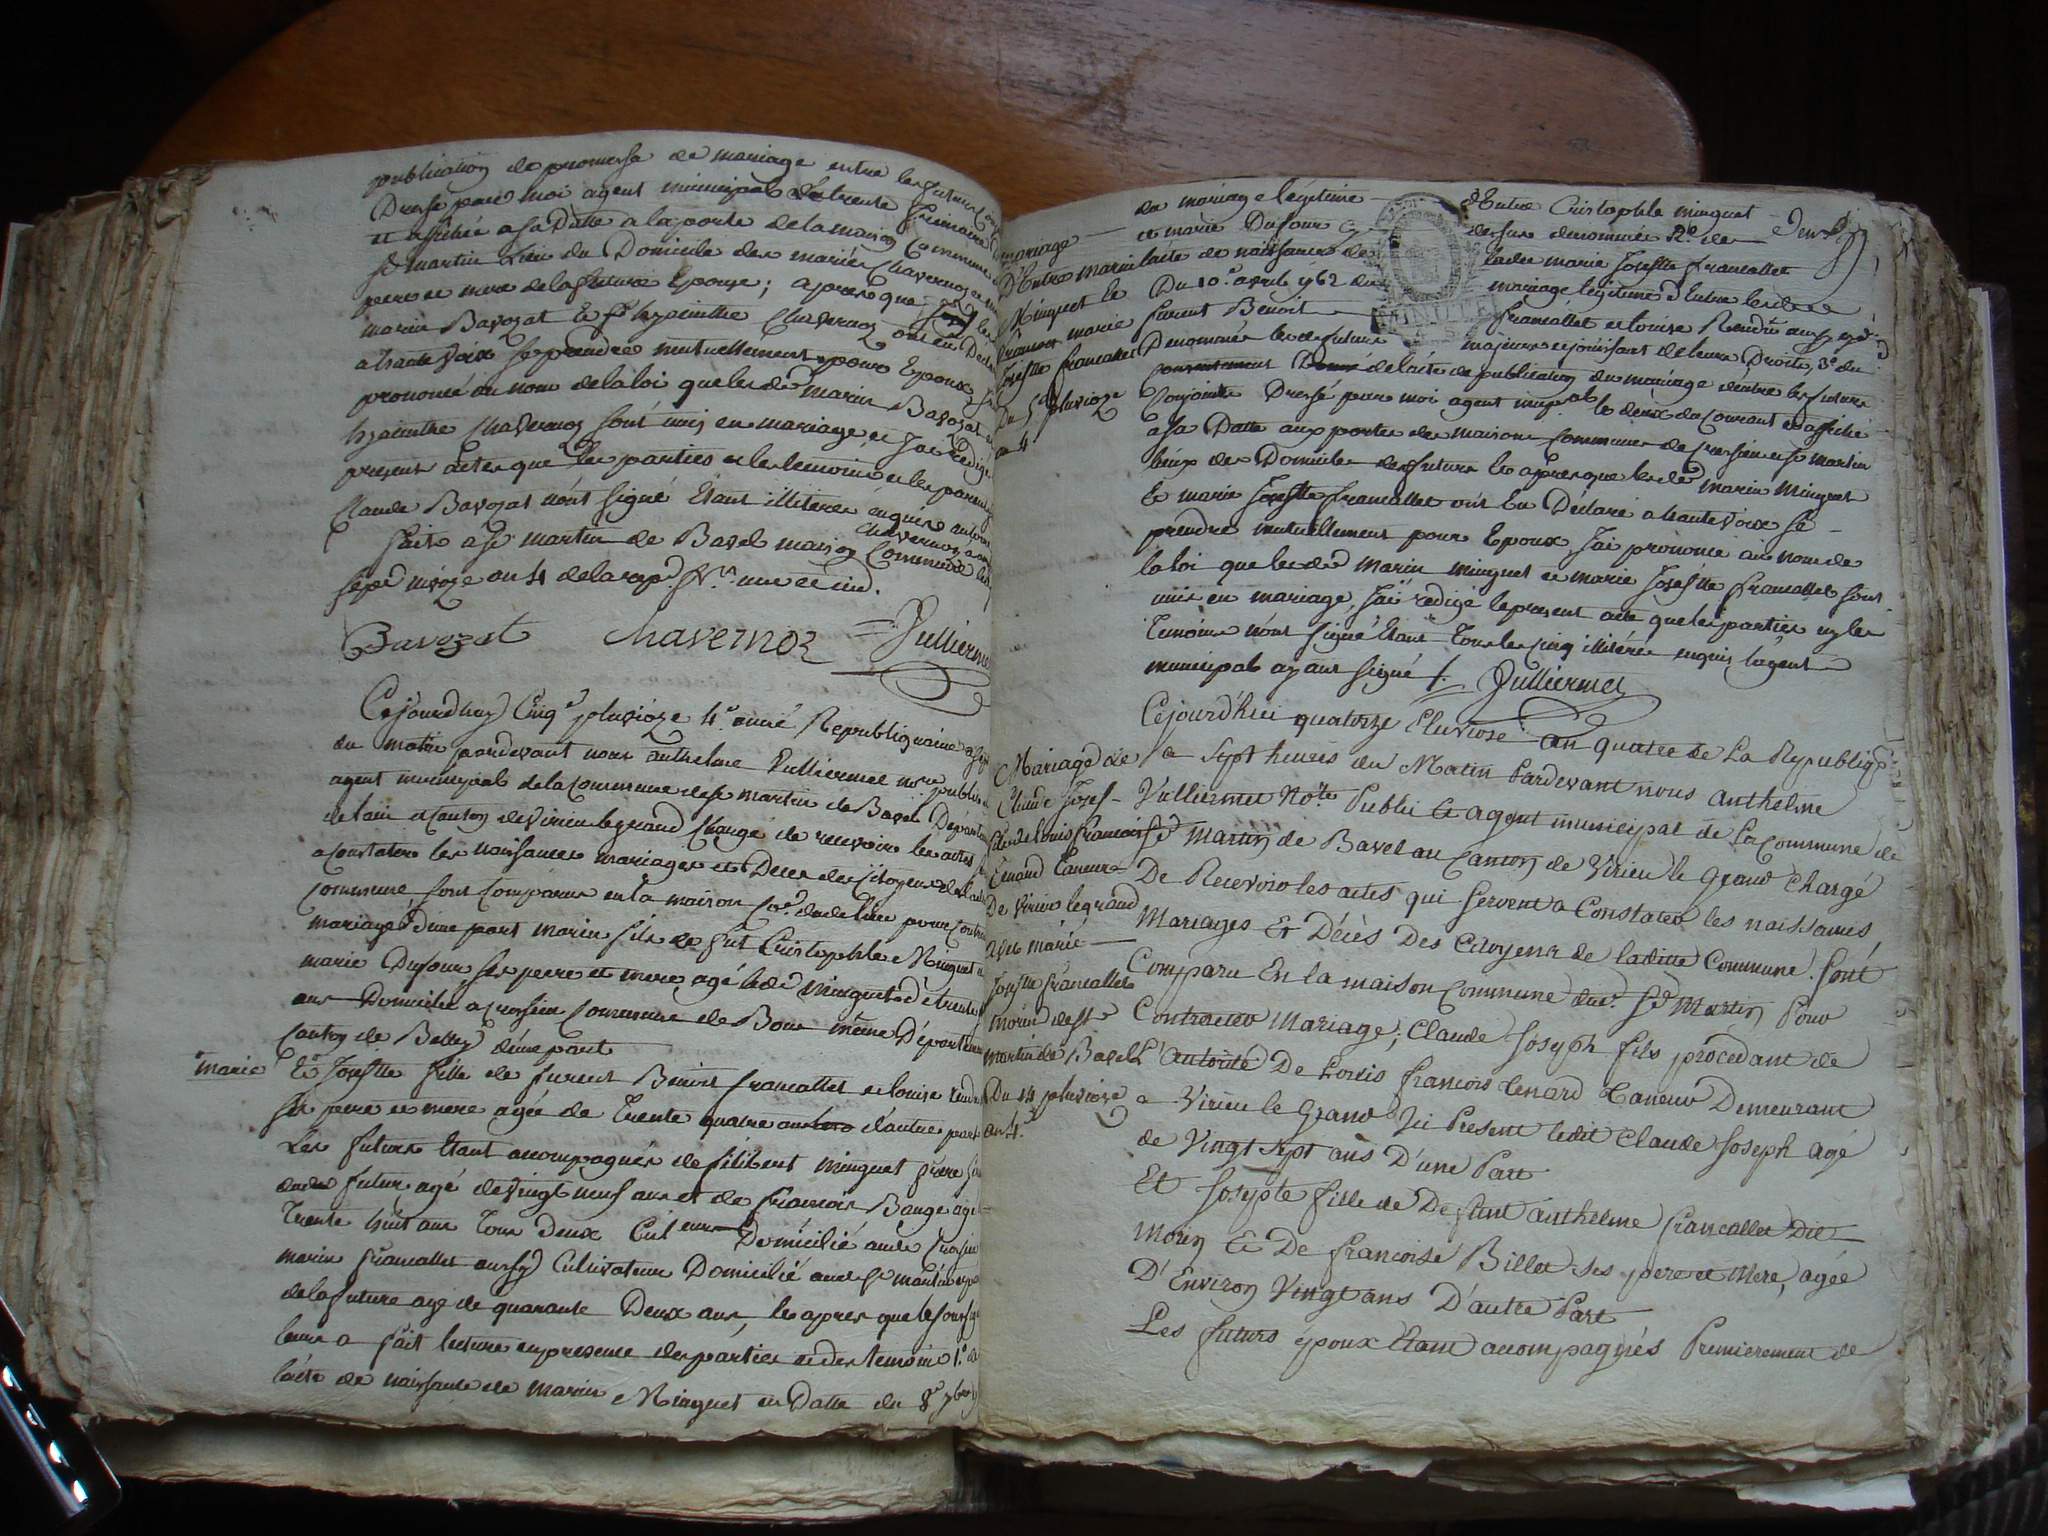 publication de promesse de mariage entre les futurs
Dressé par moi agent municipal le trente frimaire
et affiché a sa Datte a la porte de la maison Commune
St martin Lieu du Domicile des mariés Chavernoz
pere et mere de la future Epouse; apres que les
marin Bavozat Et hyacinthe Chavernoz ont eu Declaré
a haute voix se prendre mutuellement pour Epoux, j'ai
prononcé au nom de la loi que les dts marin Bavozat et
hyacinthe Chavernoz sont unis en mariage et J'ai redigé
present acte que les parties et les temoins et les parents
Claude Bavozat n'ont signé Etant illiterés enquis
chavernoz
fait a St martin de Bavel maison Commune les
nivoze an 4 de la rep.e f.se une et ind.
Bavozat chavernoz Jullierme
Cejourdhuy Cinq pluvioze 4e année Republiquaine a sept
du matin pardevant nous anthelme Vulliermet n.re public
agent municipal de la Commune de St martin de Bavel Departement
de lain et Canton de Virieu le grand Chargé de recevoir les actes
a Constater les naissances mariages et Deces des Citoyens de la
Commune sont Comparus en la maison dudit lieu pour Contracter
mariage d'une part marin fils de fut Cristophle Minguet et
marie Dufour ses pere et mere, agé le dt Minguet de trente
ans Domicilié a Commune de même Departement
Canton de Belley d'une part
marie Et Josephte fille de furent Benoit francallet et louise
ses pere et mere agée de Trente quatre ans d'autre part
Les futurs Etant accompagnés de filibert minguet frere
dudt futur, agé de vingt neuf ans et de francois Bauge agé
Trente huit ans Tous Deux Cult.eurs Domicilié
marin francallet aussy Cultivateur Domicilié audt St martin
de la future agé de quarante Deux ans, les apres que
leurs a fait lecture en presence des parties et des temoins 1.o de
l'acte de naissance de marin Minguet en Datte du 8e 7bre
de mariage légitime D'Entre Cristophle minguet
et marie Dufour dessus denommés 2.o de
l'acte de naissance de ladte marie Josephte francallet
Du 10.e avril 1762 du mariage légitime D'Entre les
furent Benoit francallet et louise
Denommés les dt futurs majeurs et jouissant de leurs Droits, 3.o du
de l'acte de publication du mariage d'entre les futurs
Conjoints Dressé par moi agent le deux du Courant et affiché
a sa Datte aux portes des maisons Communes de et St martin
lieux des Domiciles des futurs les apres que les dts marin Minguet
Et marie Josephte francallet ont Eu Déclaré a haute voix se
prendre mutuellement pour Epoux J'ai prononcé au nom de
la loi que les dts marin minguet et marie Josephte francallet sont
unis en mariage, J'ai redigé le present acte que les parties ny les
Temoins n'ont signé Etant Tous les cinq illiterés enquis l'agent
municipal ayant signé /. Julliermet
mariage
D'Entre marin
Minguet Et
marie
Josephte francallet
Du 5 pluvioze
an 4
Cejourd'hui quatorze Pluviose an quatre de La Republique
a Sept heures du Matin Pardevant nous Anthelme
Vulliermet No.re Public Et agent municipal de La Commune de
St Martin de Bavel au Canton de Virieu le Grand Chargé
De Recevoir les actes qui servent a Constater les naissances,
Mariages Et Décès Des Citoyens de ladite Commune. sont
Comparu En la maison Commune dud. St Martin Pour
Contracter Mariage; Claude Joseph fils procédant de
L'autorité De Louis francois Tenard Taneur Demeurant
a Virieu le Grand Ici Present ledit Claude Joseph agé
de Vingt sept ans D'une Part
Et Josephte fille de Defunt anthelme francallet Dit
Morin Et De francoise Billet ses pere et Mere, agée
D'Environ Vingt ans D'autre Part
Les futurs époux Etant accompagnés Premierement de
Mariage de
Claude Josef
fils de Louis francois
Tenard Taneur
De Virieu le grand
avec marie
Josephte francallet
morin de St
martin de Bavel
Du 14 pluvioze
an 4.